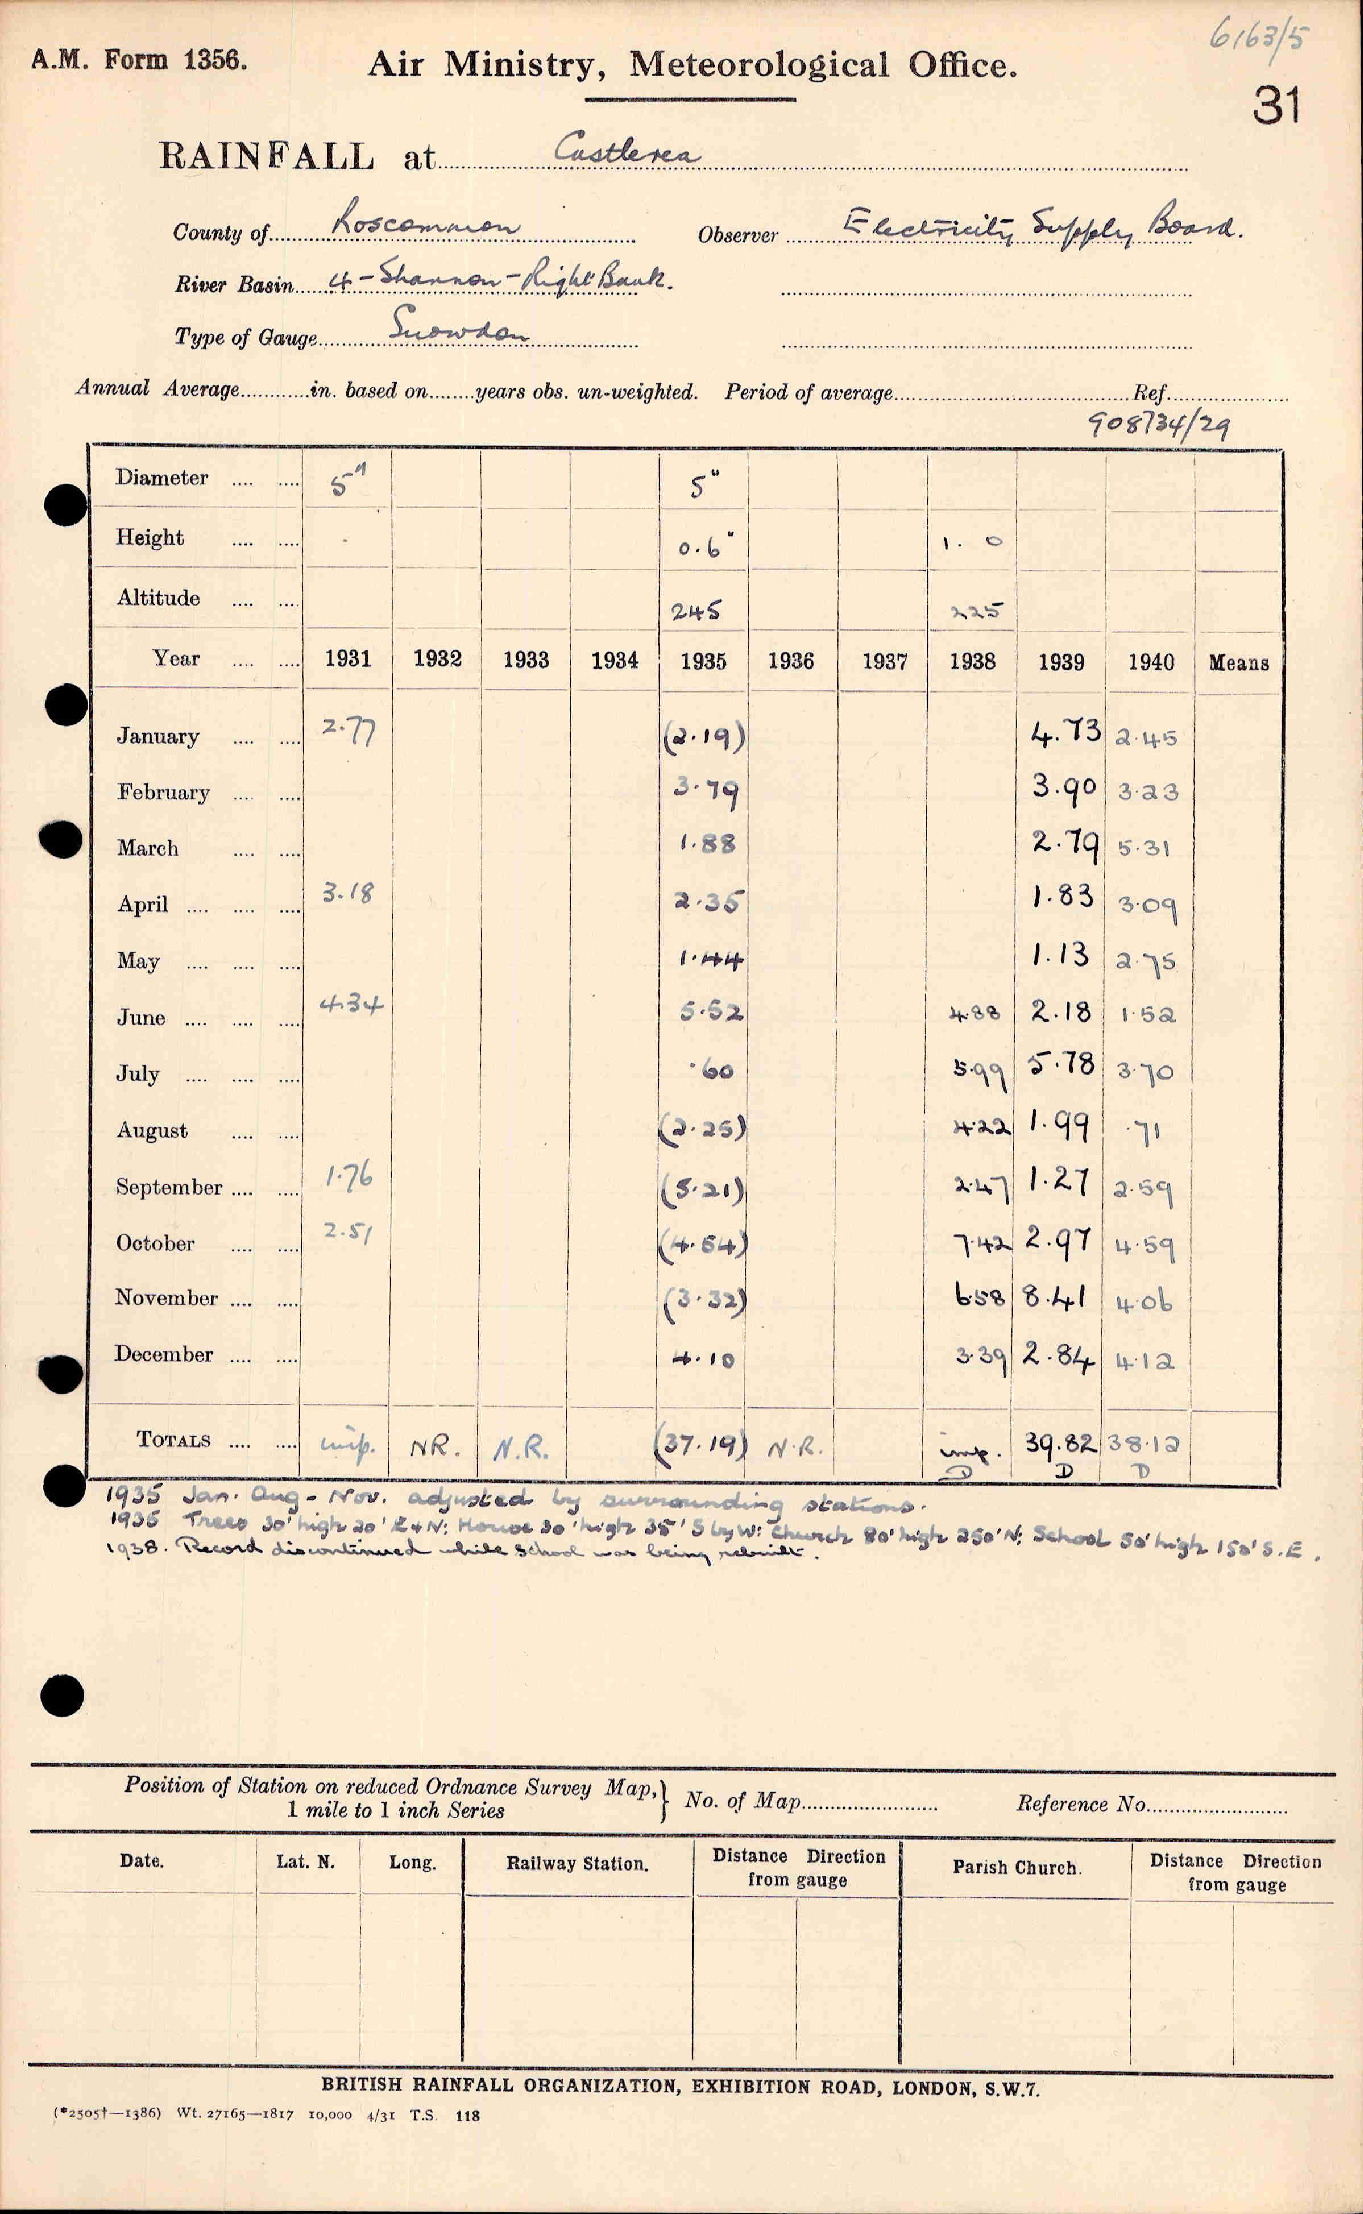 6163/5
A.M. Form 1356. Air Ministry, Meteorological Office.
31
RAINFALL at Castlerea
County of Roscommon Observer Electricity Supply Board.
River Basin 4 - Shannon - Right Bank.
Type of Gauge Snowdon
Annual Average in. based on years obs. un-weighted. Period of average Ref.
908734/29
Diameter 5" 5"
Height 0.6" 1. 0
Altitude 245 225
Year 1931 1932 1933 1934 1935 1936 1937 1938 1939 1940 Means
January 2.77 (2.19) 4.73 2.45
February 3.79 3.90 3.23
March 1.88 2.79 5.31
April 3.18 2.35 1.83 3.09
May 1.44 1.13 2.75
June 4.34 5.52 4.88 2.18 1.52
July .60 5.99 5.78 3.70
August (2.25) 4.22 1.99 .71
September 1.76 (5.21) 2.47 1.27 2.59
October 2.51 (4.54) 7.42 2.97 4.59
November (3.32) 6.58 8.41 4.06
December 4.10 3.39 2.84 4.12
TOTALS imp. NR. N.R. (37.19) N.R. imp. 39.82 38.12
D D D
1935 Jan. Aug - Nov. adjusted by surrounding stations.
1935 Trees 30' high 20' E & N; House 30' high 35' S by W; Church 80' high 250' N; School 50' high 150' S.E.
1938. Record discontinued while school was being rebuilt.
Position of Station on reduced Ordnance Survey Map,} No. of Map Reference No.
1 mile to 1 inch Series
Date. Lat. N. Long. Railway Station. Distance Direction from gauge Parish Church. Distance Direction from gauge
BRITISH RAINFALL ORGANIZATION, EXHIBITION ROAD, LONDON, S.W.7.
(*2505†—1386) Wt. 27165—1817 10,000 4/31 T.S. 118